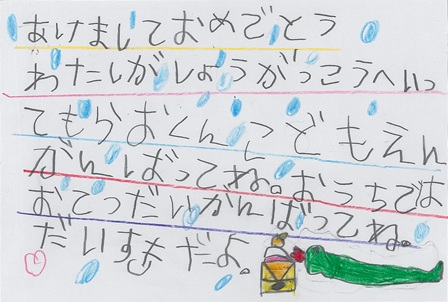 あけましておめでとう
わたしがしょうがっこうへいっ
てもらおくんこどもえん
がんばってね。おうちでは
おてつだいがんばってね。
だいすきだよ。